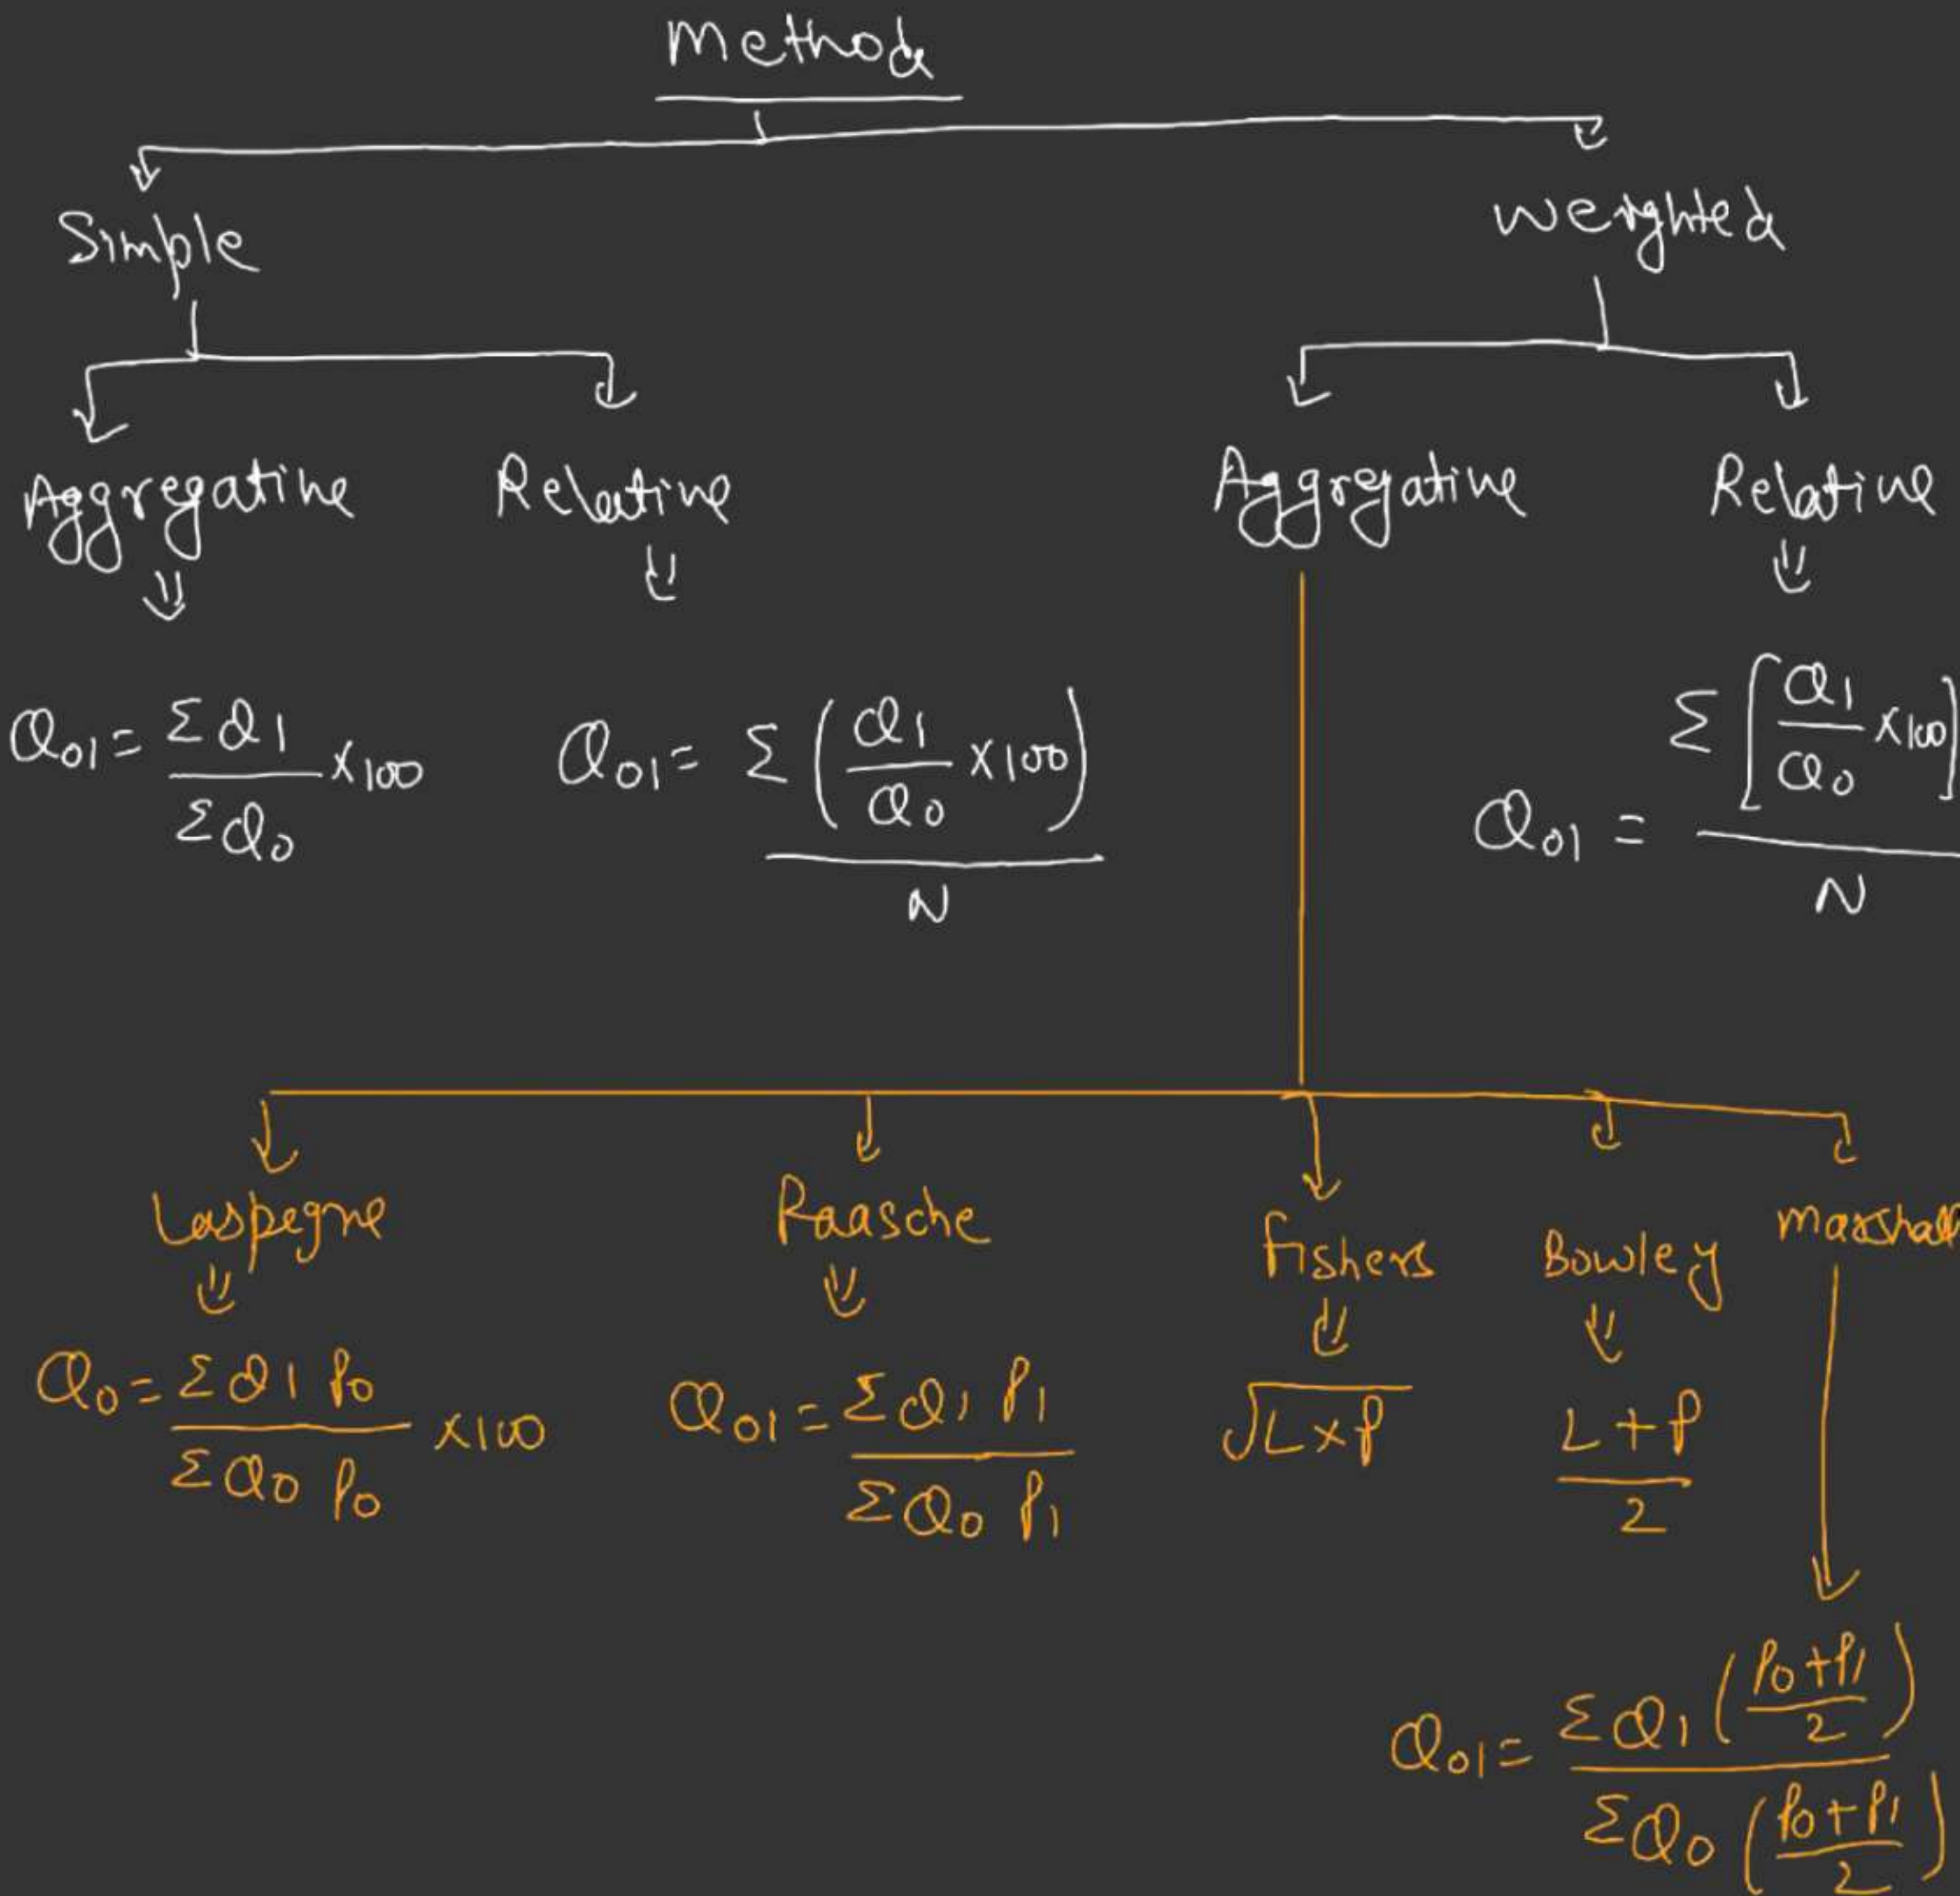 Method
Simple
Weighted
Aggregative Relative
Aggregative Relative
Q01 = ΣQ1/ΣQ0 ×100
Q01 = Σ(Q1/Q0 ×100)/N
Q01 = Σ[Q1/Q0 ×100]/N
Laspegne
Paasche
fishers
Bowley
marshall
Q0 = ΣQ1 P0/ΣQ0 P0 ×100
Q01 = ΣQ1 P1/ΣQ0 P1
√L×P
L+P/2
Q01 = ΣQ1(P0+P1/2)/ΣQ0(P0+P1/2)